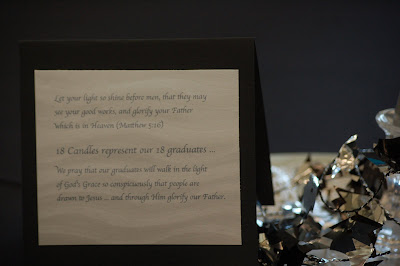 Let your light so shine before men, that they may
see your good works, and glorify your Father
Which is in Heaven (Matthew 5:16)
18 Candles represent our 18 graduates ...
We pray that our graduates will walk in the light
of God's Grace so conspicuously that people are
drawn to Jesus ... and through Him glorify our Father.